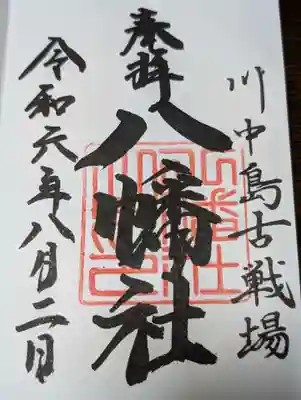 川中島古戦場
奉拝
八幡社
令和元年八月二日